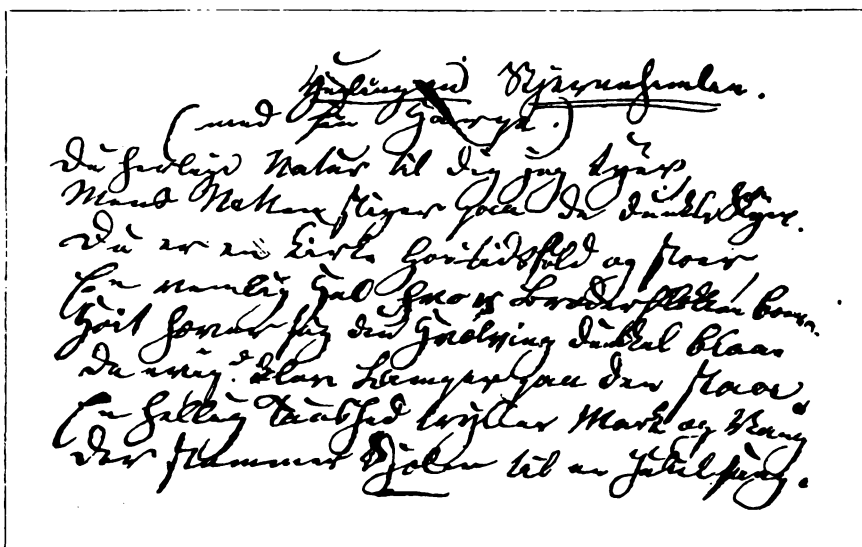 Stjernehimlen.
(med sin Harpe.)
Du herlige Natur til dig jeg tyer,
Mens Natten stiger paa de dunkle Skyer.
Du er en Kirke høitidsfuld og stoer,
En venlig Hal hvor Broderflokken boer.
Høit hæver sig din Hvælving dunkel blaae
De evige klare Lamper paa den staae
En hellig Taushed hviler Mark og Vang
Der stemmer Sjælen til en Jubelsang.